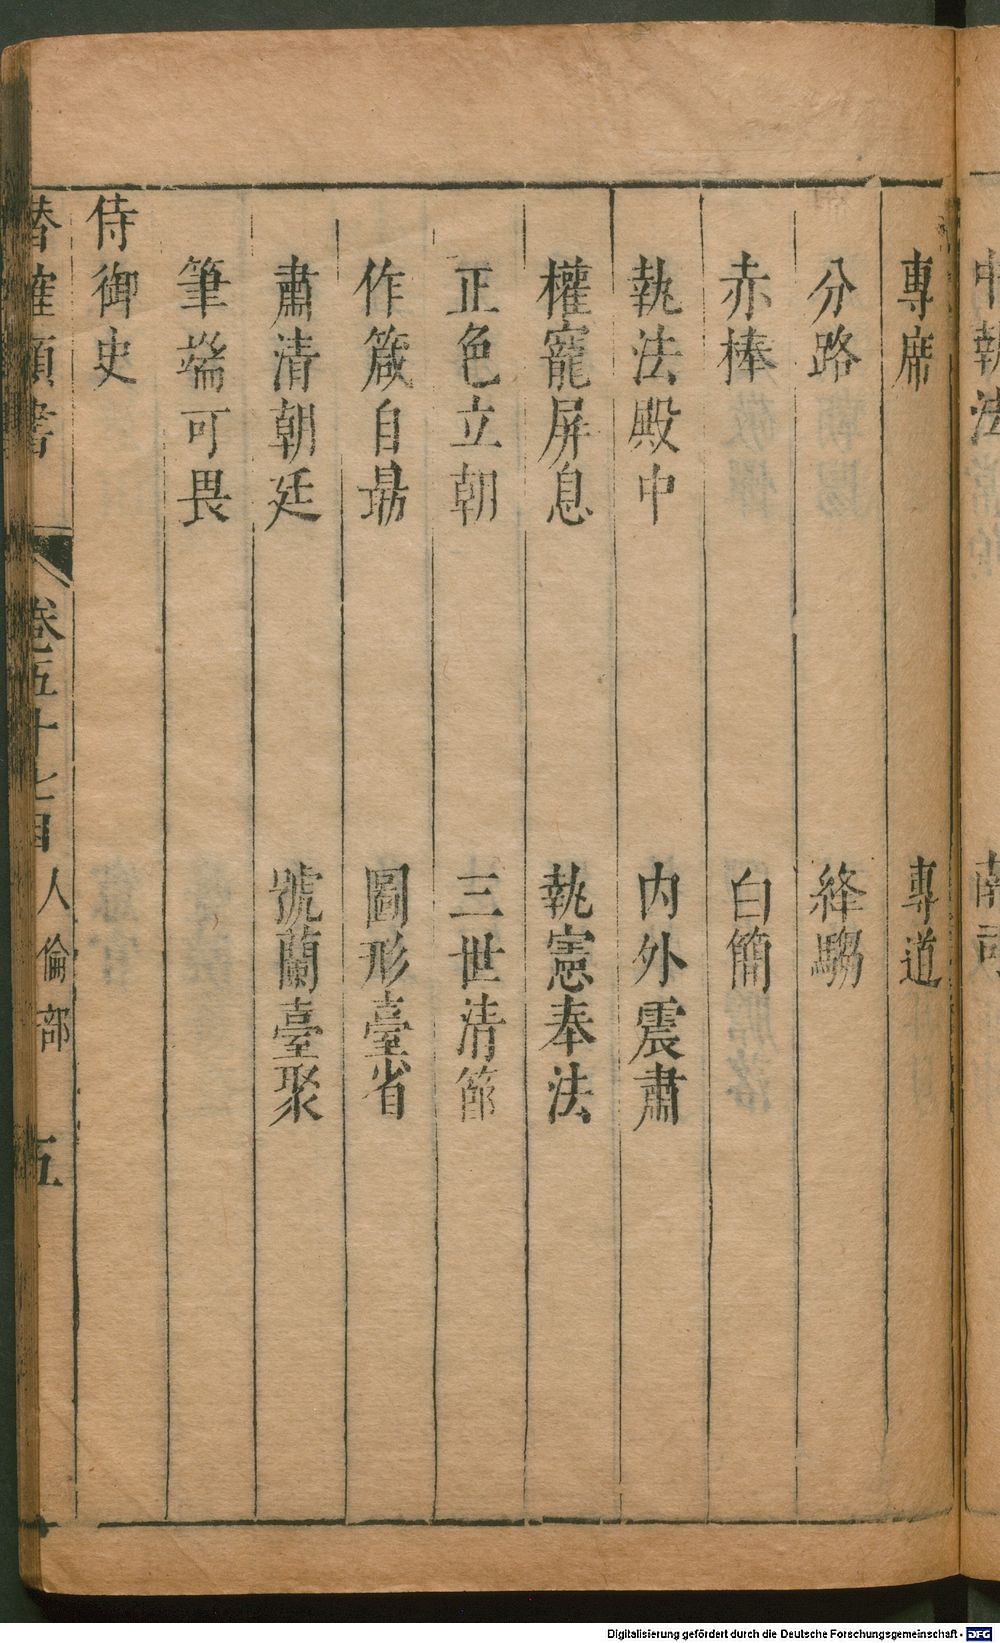 中執法
南司
專席 專道
分路 絳騶
赤棒 白簡
執法殿中 内外震肅
權寵屏息 執憲奉法
正色立朝 三世清節
作箴自勗 圖形臺省
肅清朝廷 號蘭臺聚
筆端可畏
侍御史
潛確類書 卷五十七目 人倫部 五
Digitalisierung gefördert durch die Deutsche Forschungsgemeinschaft - DFG